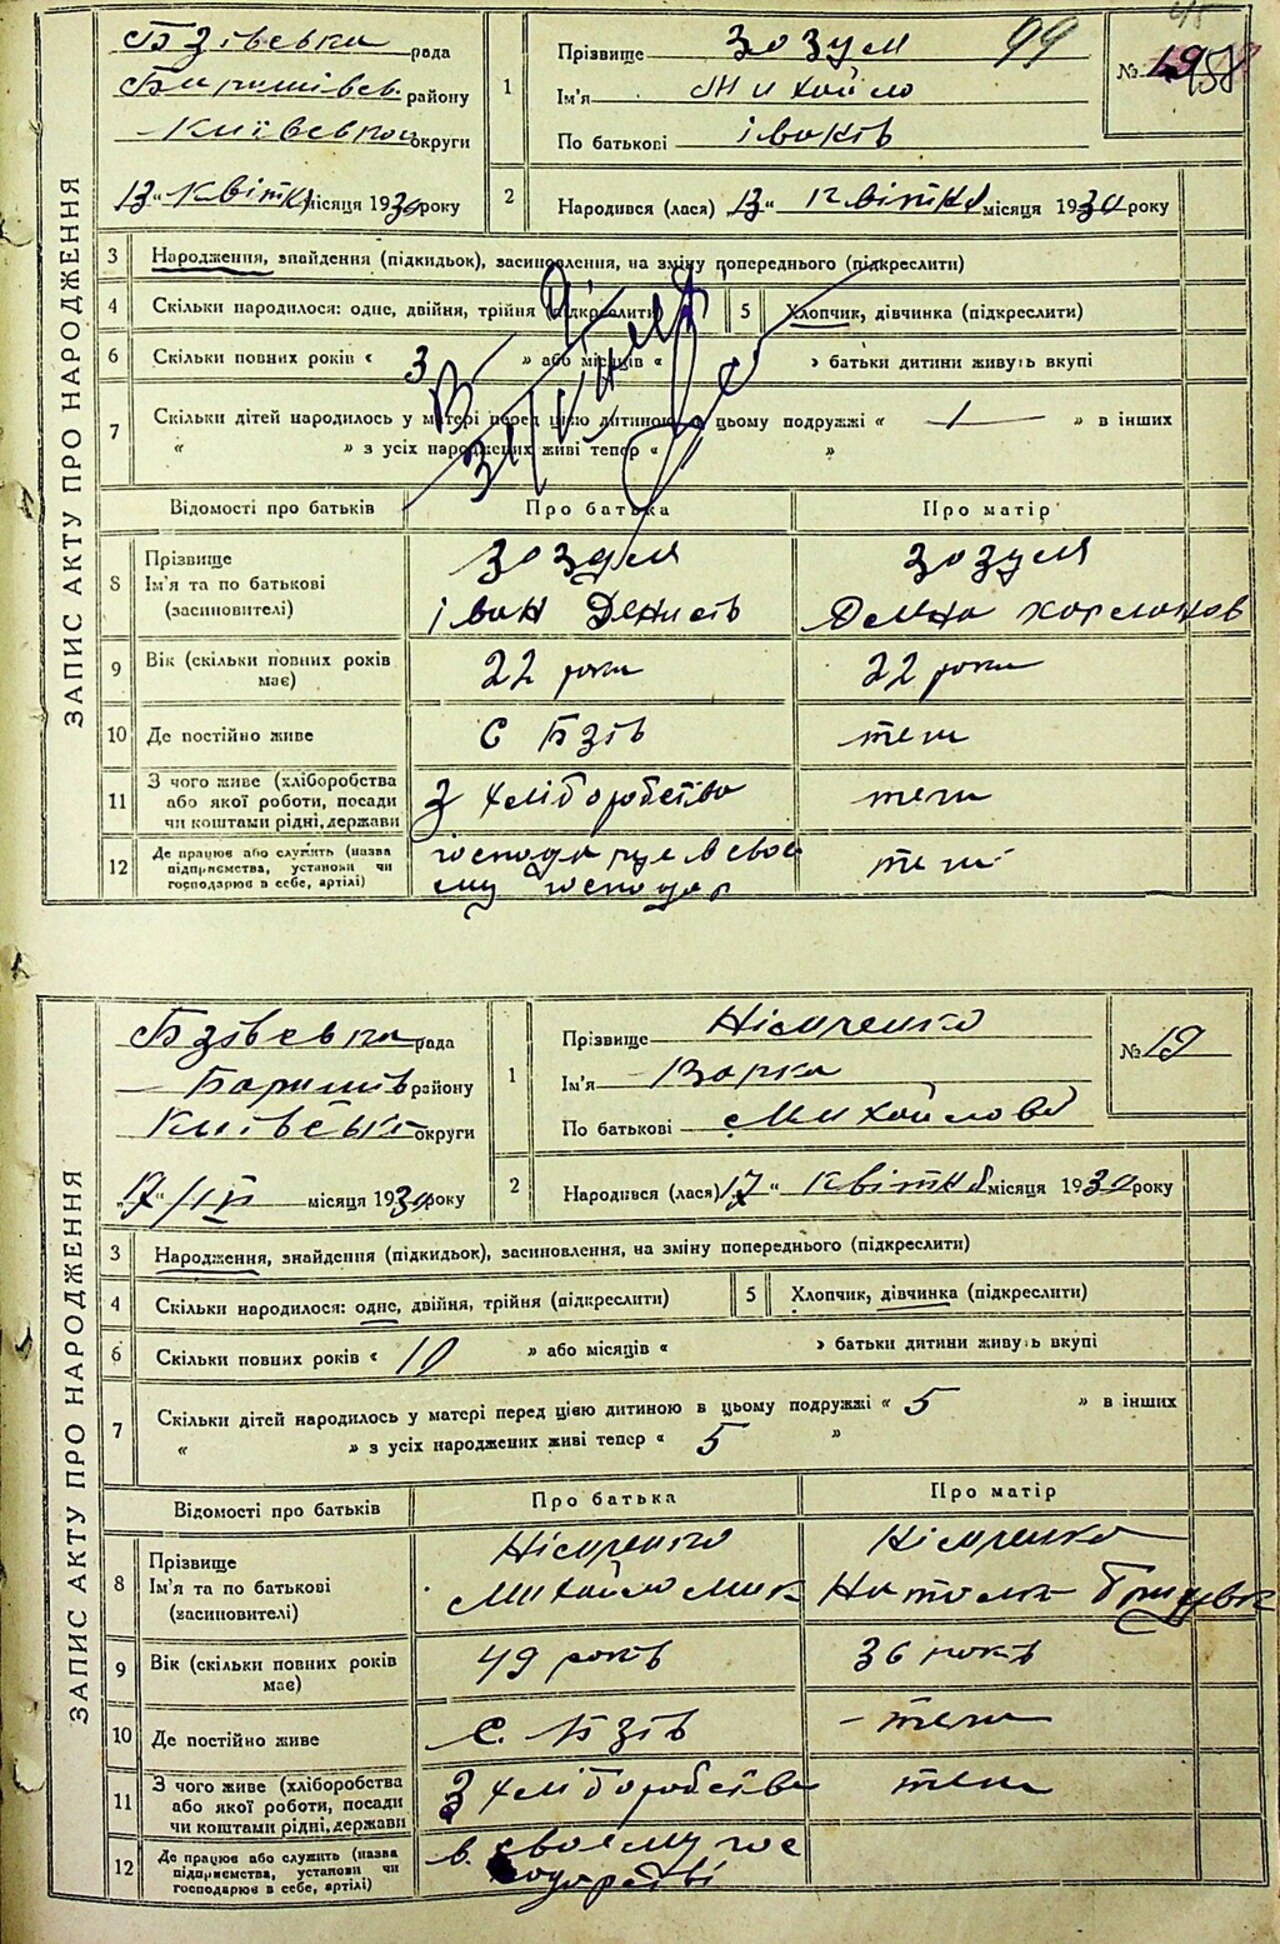 ЗАПИС АКТУ ПРО НАРОДЖЕННЯ
Бзівська рада
Баришівськ. району
Київської округи
13 " Квітня місяця 1930 року
1 Прізвище Зозуля 99
Ім'я Михайло
По батькові Іванів
№
2 Народився (лася) 13 " Квітня місяця 1930 року
3 Народження, знайдення (підкидьок), засиновлення, на зміну попереднього (підкреслити)
4 Скільки народилося: одне, двійня, трійня (підкреслити)
5 Хлопчик, дівчинка (підкреслити)
6 Скільки повних років « 3 » або місяців « » батьки дитини живуть вкупі
7 Скільки дітей народилось у матері перед цією дитиною в цьому подружжі « 1 » в інших
« » з усіх народжених живі тепер « »
Відомості про батьків Про батька Про матір
8 Прізвище
Ім'я та по батькові
(засиновителі)
Зозуля
Іван Денисів
Зозуля
9 Вік (скільки повних років
має)
22 роки 22 роки
10 Де постійно живе С Бзів теж
11 З чого живе (хліборобства
або якої роботи, посади
чи коштами рідні, держави
З хліборобства теж
12 Де працює або служить (назва
підприємства, установи чи
господарює в себе, артілі)
господарює в свої
ому господар
теж
ЗАПИС АКТУ ПРО НАРОДЖЕННЯ
Бзівська рада
Баришів району
Київськ округи
17 " IV місяця 1930 року
1 Прізвище
Ім'я Варка
По батькові Михайлова
№ 19
2 Народився (лася) 17 " Квітня місяця 1930 року
3 Народження, знайдення (підкидьок), засиновлення, на зміну попереднього (підкреслити)
4 Скільки народилося: одне, двійня, трійня (підкреслити)
5 Хлопчик, дівчинка (підкреслити)
6 Скільки повних років « 10 » або місяців « » батьки дитини живуть вкупі
7 Скільки дітей народилось у матері перед цією дитиною в цьому подружжі « 5 » в інших
« » з усіх народжених живі тепер « 5 »
Відомості про батьків Про батька Про матір
8 Прізвище
Ім'я та по батькові
(засиновителі)
Михайло Мик
9 Вік (скільки повних років
має)
49 років 36 років
10 Де постійно живе С. Бзів теж
11 З чого живе (хліборобства
або якої роботи, посади
чи коштами рідні, держави
З хліборобства теж
12 Де працює або служить (назва
підприємства, установи чи
господарює в себе, артілі)
в своєму гос
подарстві